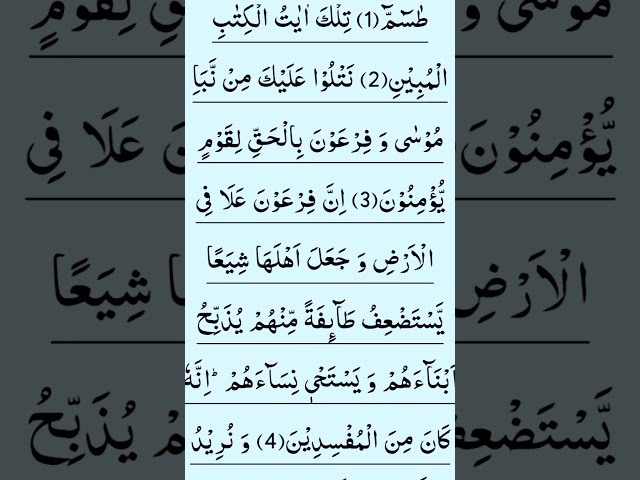 طٰسٓمّٓ(1) تِلْكَ اٰیٰتُ الْكِتٰبِ
الْمُبِیْنِ(2) نَتْلُوْا عَلَیْكَ مِنْ نَّبَاِ
مُوْسٰى وَ فِرْعَوْنَ بِالْحَقِّ لِقَوْمٍ
یُّؤْمِنُوْنَ(3) اِنَّ فِرْعَوْنَ عَلَا فِی
الْاَرْضِ وَ جَعَلَ اَهْلَهَا شِیَعًا
یَّسْتَضْعِفُ طَآىٕفَةً مِّنْهُمْ یُذَبِّحُ
اَبْنَآءَهُمْ وَ یَسْتَحْیٖ نِسَآءَهُمْؕ اِنَّهٗ
كَانَ مِنَ الْمُفْسِدِیْنَ(4) وَ نُرِیْدُ